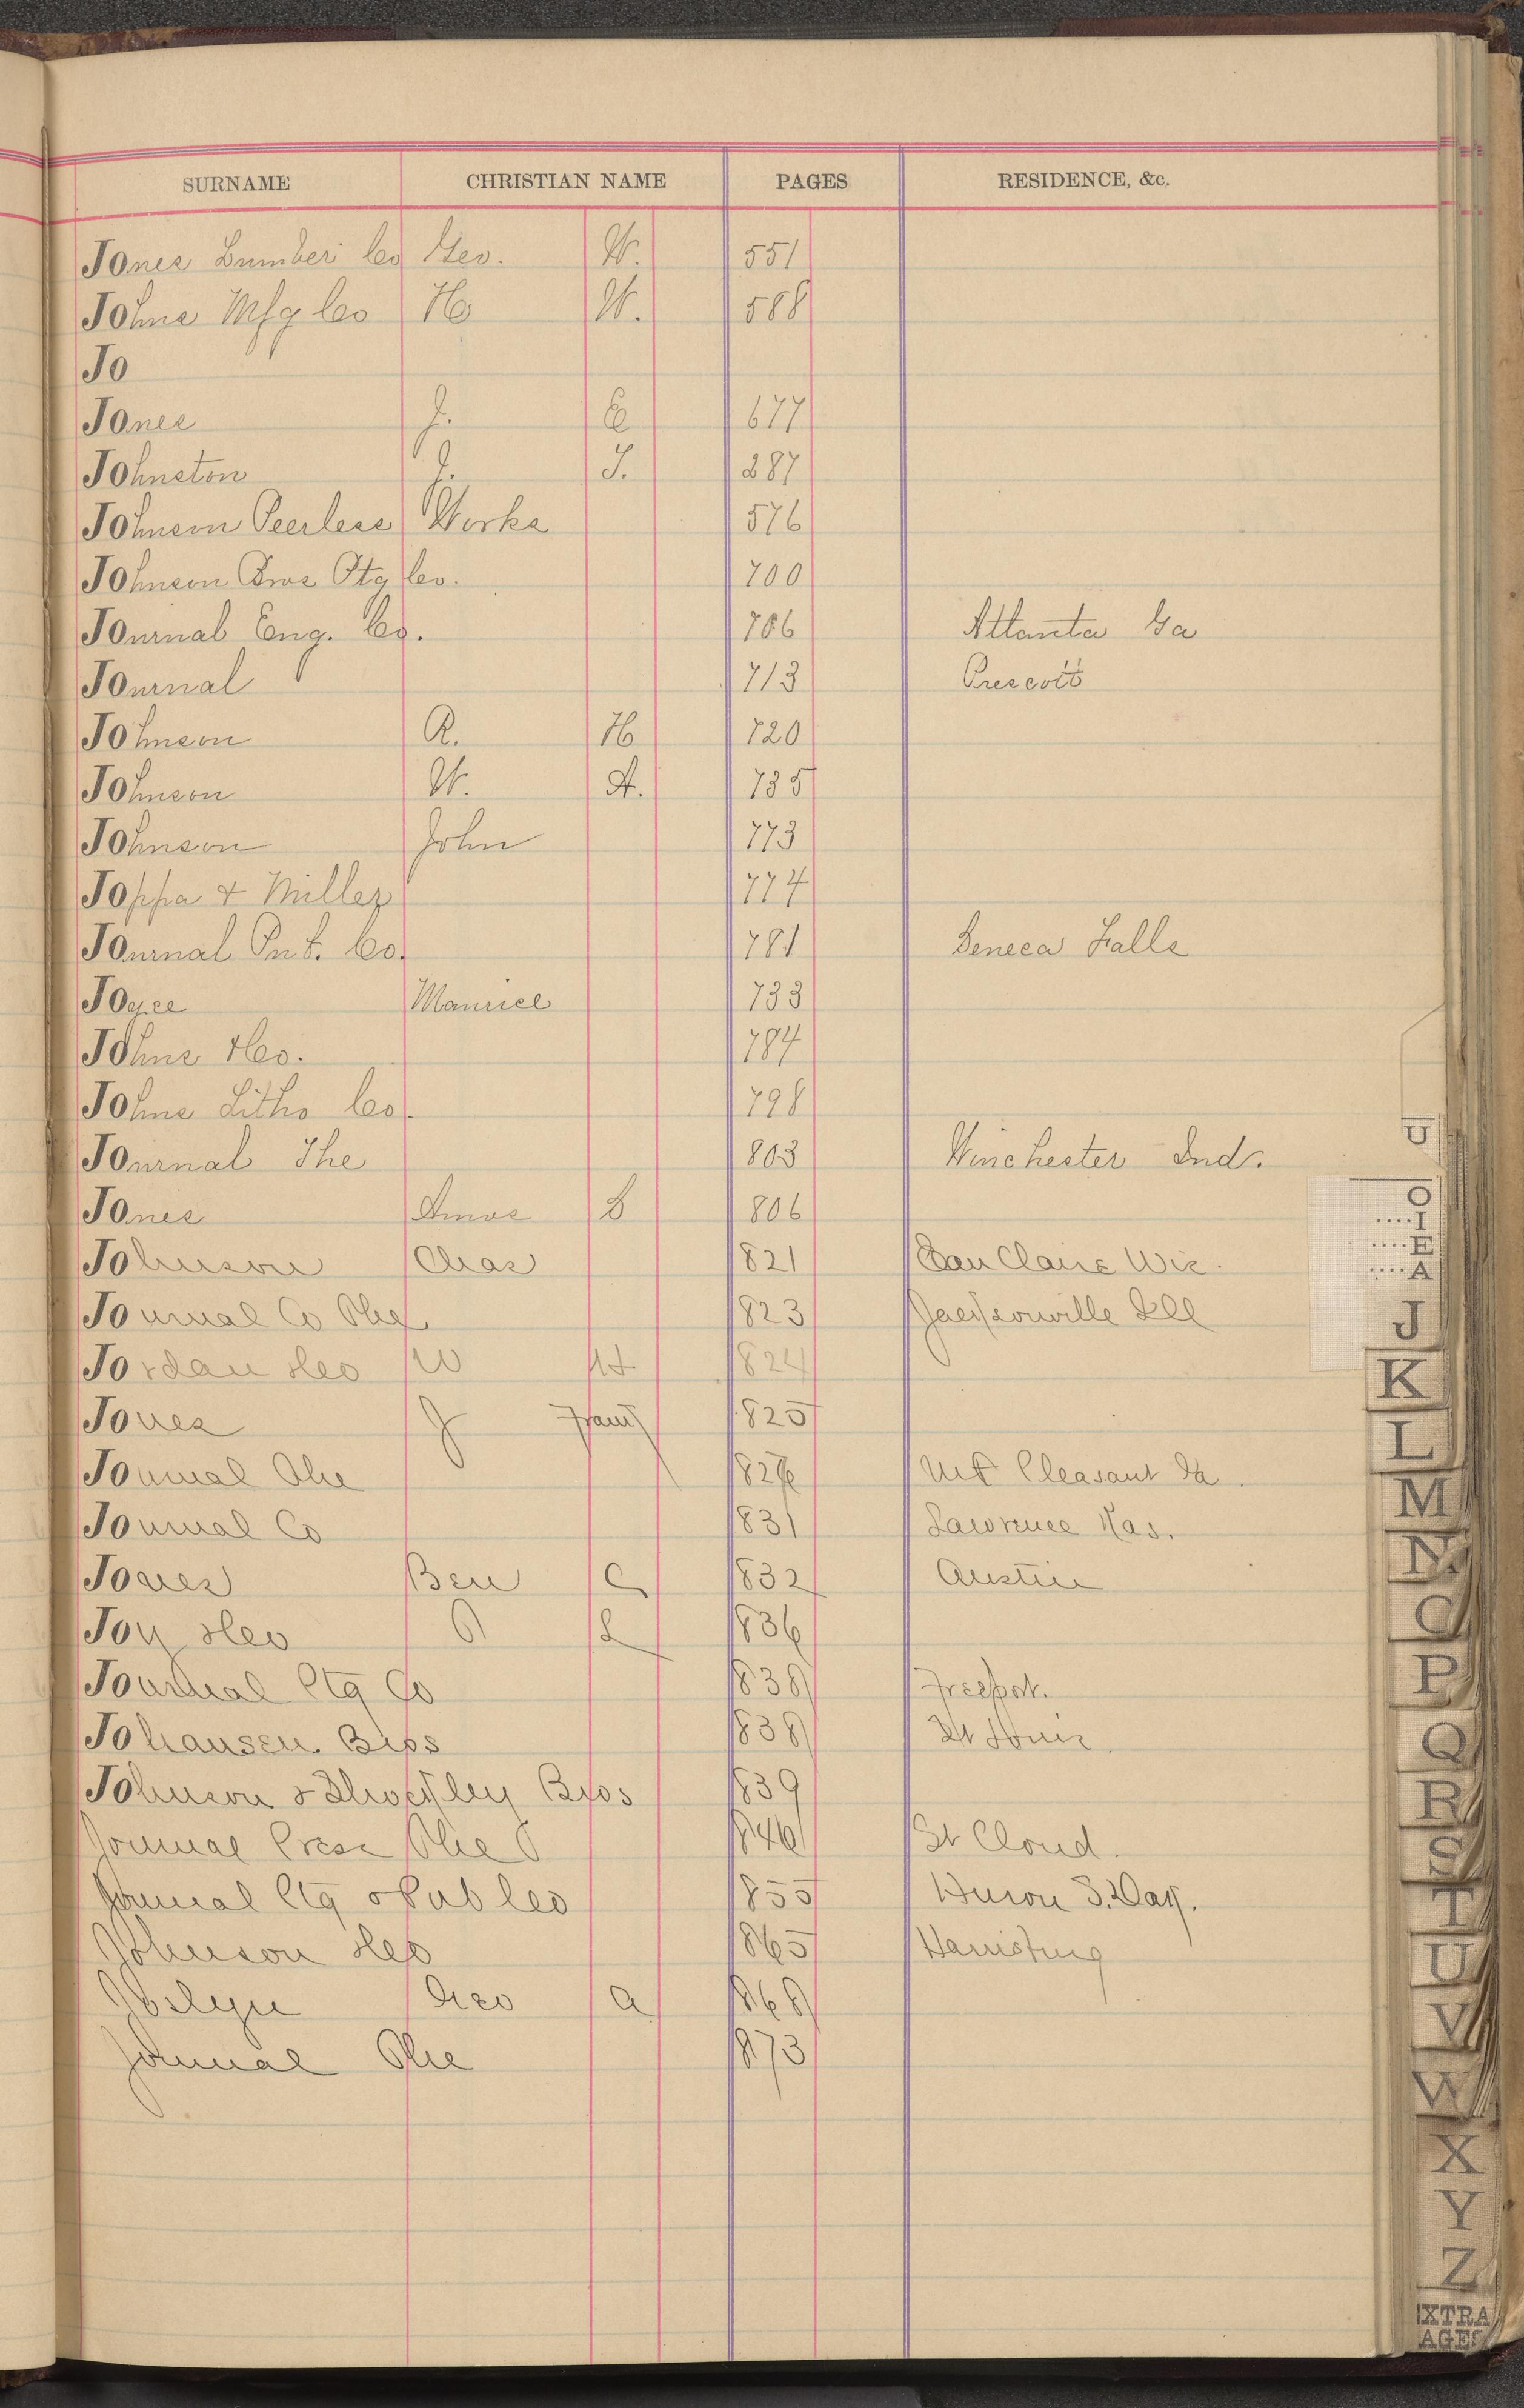 SURNAME CHRISTIAN NAME PAGES RESIDENCE, &c.
Jones Lumber Co Geo. W. 551
Johns Mfg Co H W. 588
Jo
Jones J. E 677
Johnston J. J. 287
Johnson Peerless Works 576
Johnson Bros Ptg Co. 700
Journal Eng. Co. 706 Atlanta Ga
Journal 713 Prescott
Johnson R. H 720
Johnson W. A. 735
Johnson John 773
Joppa & Miller 774
Journal Pub. Co. 781 Seneca Falls
Joyce Maurice 733
Johns Geo. 784
Johns Litho Co. 798
Journal The 803 Winchester Ind.
Jones Amos B 806
Johnson Chas 821 Eau Claire Wis.
Journal Co The 823 Jacksonville Ill
Jordan Geo W H 824
Jones J Frank 825
Journal The 826 Mt Pleasant Ia.
Journal Co 831 Lawrence Kas.
Jones Ben C 832 Austin
Joy Geo P L 836
Journal Ptg Co 838 Freeport.
Johansen Bros 838 St Louis.
Johnson & Bros 839
Journal Press The 846 St Cloud.
Journal Ptg & Pub Co 855 Huron S. Dak.
Johnson Geo 865 Harrisburg
Joslyn Geo A 868
Journal The 873
U
O
....I
....E
....A
J
K
L
M
N
O
P
Q
R
S
T
U
V
W
X
Y
Z
EXTRA
PAGES